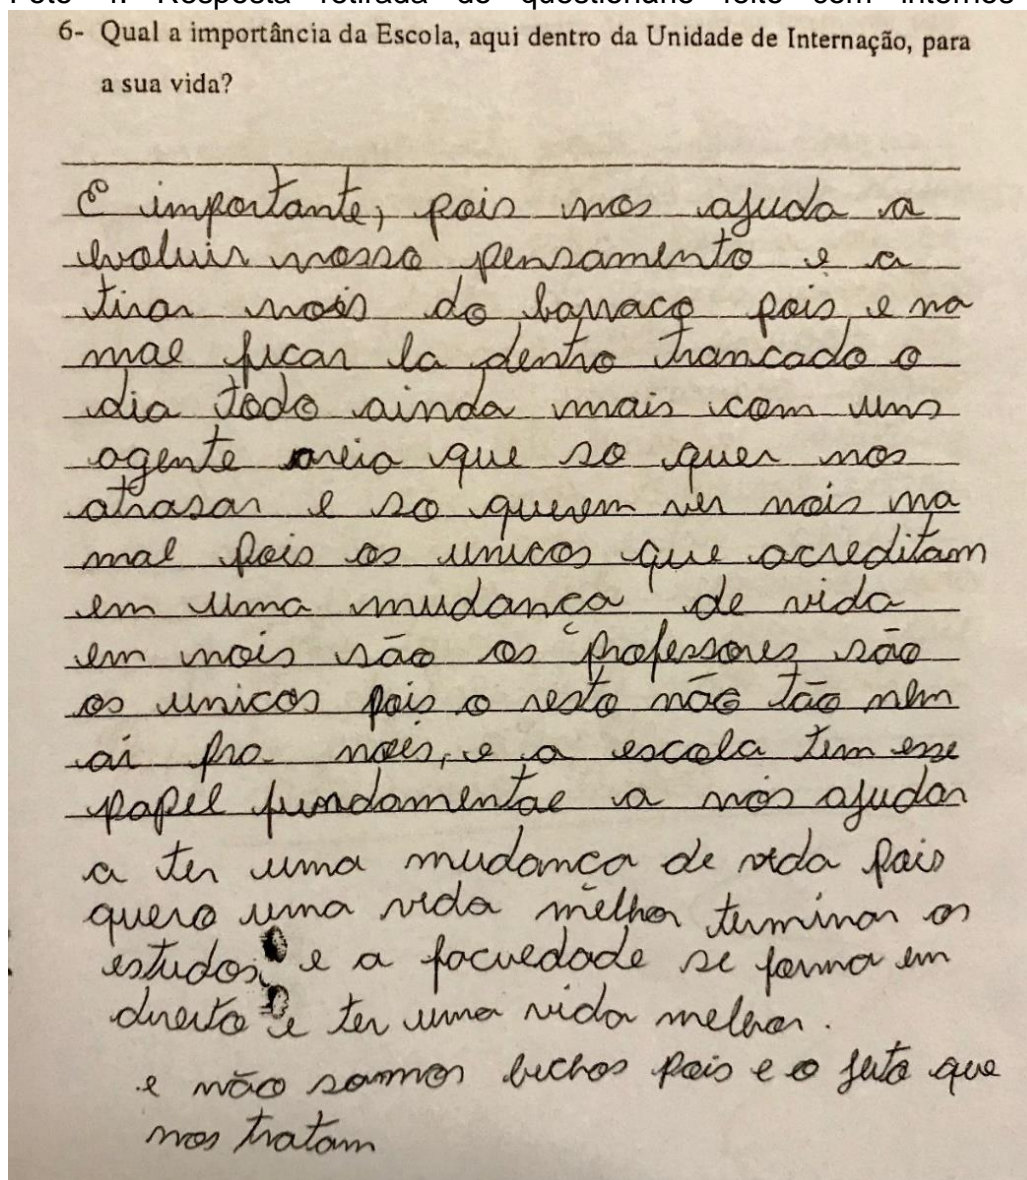 6- Qual a importância da Escola, aqui dentro da Unidade de Internação, para
a sua vida?
É importante, pois nos ajuda a
evoluir nosso pensamento e a
tirar nois do barraco pois e na
mal ficar la dentro trancado o
dia todo ainda mais com uns
agente que so quer nos
atrasar e so querem ver nois na
mal pois os unicos que acreditam
em uma mudança de vida
em nois são os professores são
os unicos pois o resto não tão nem
ai pro nois, e a escola tem esse
papel fundamental a nos ajudar
a ter uma mudança de vida pois
quero uma vida melhor terminar os
estudos, e a faculdade se forma em
direito e ter uma vida melhor.
e não somos bichos pois e o jeito que
nos tratam